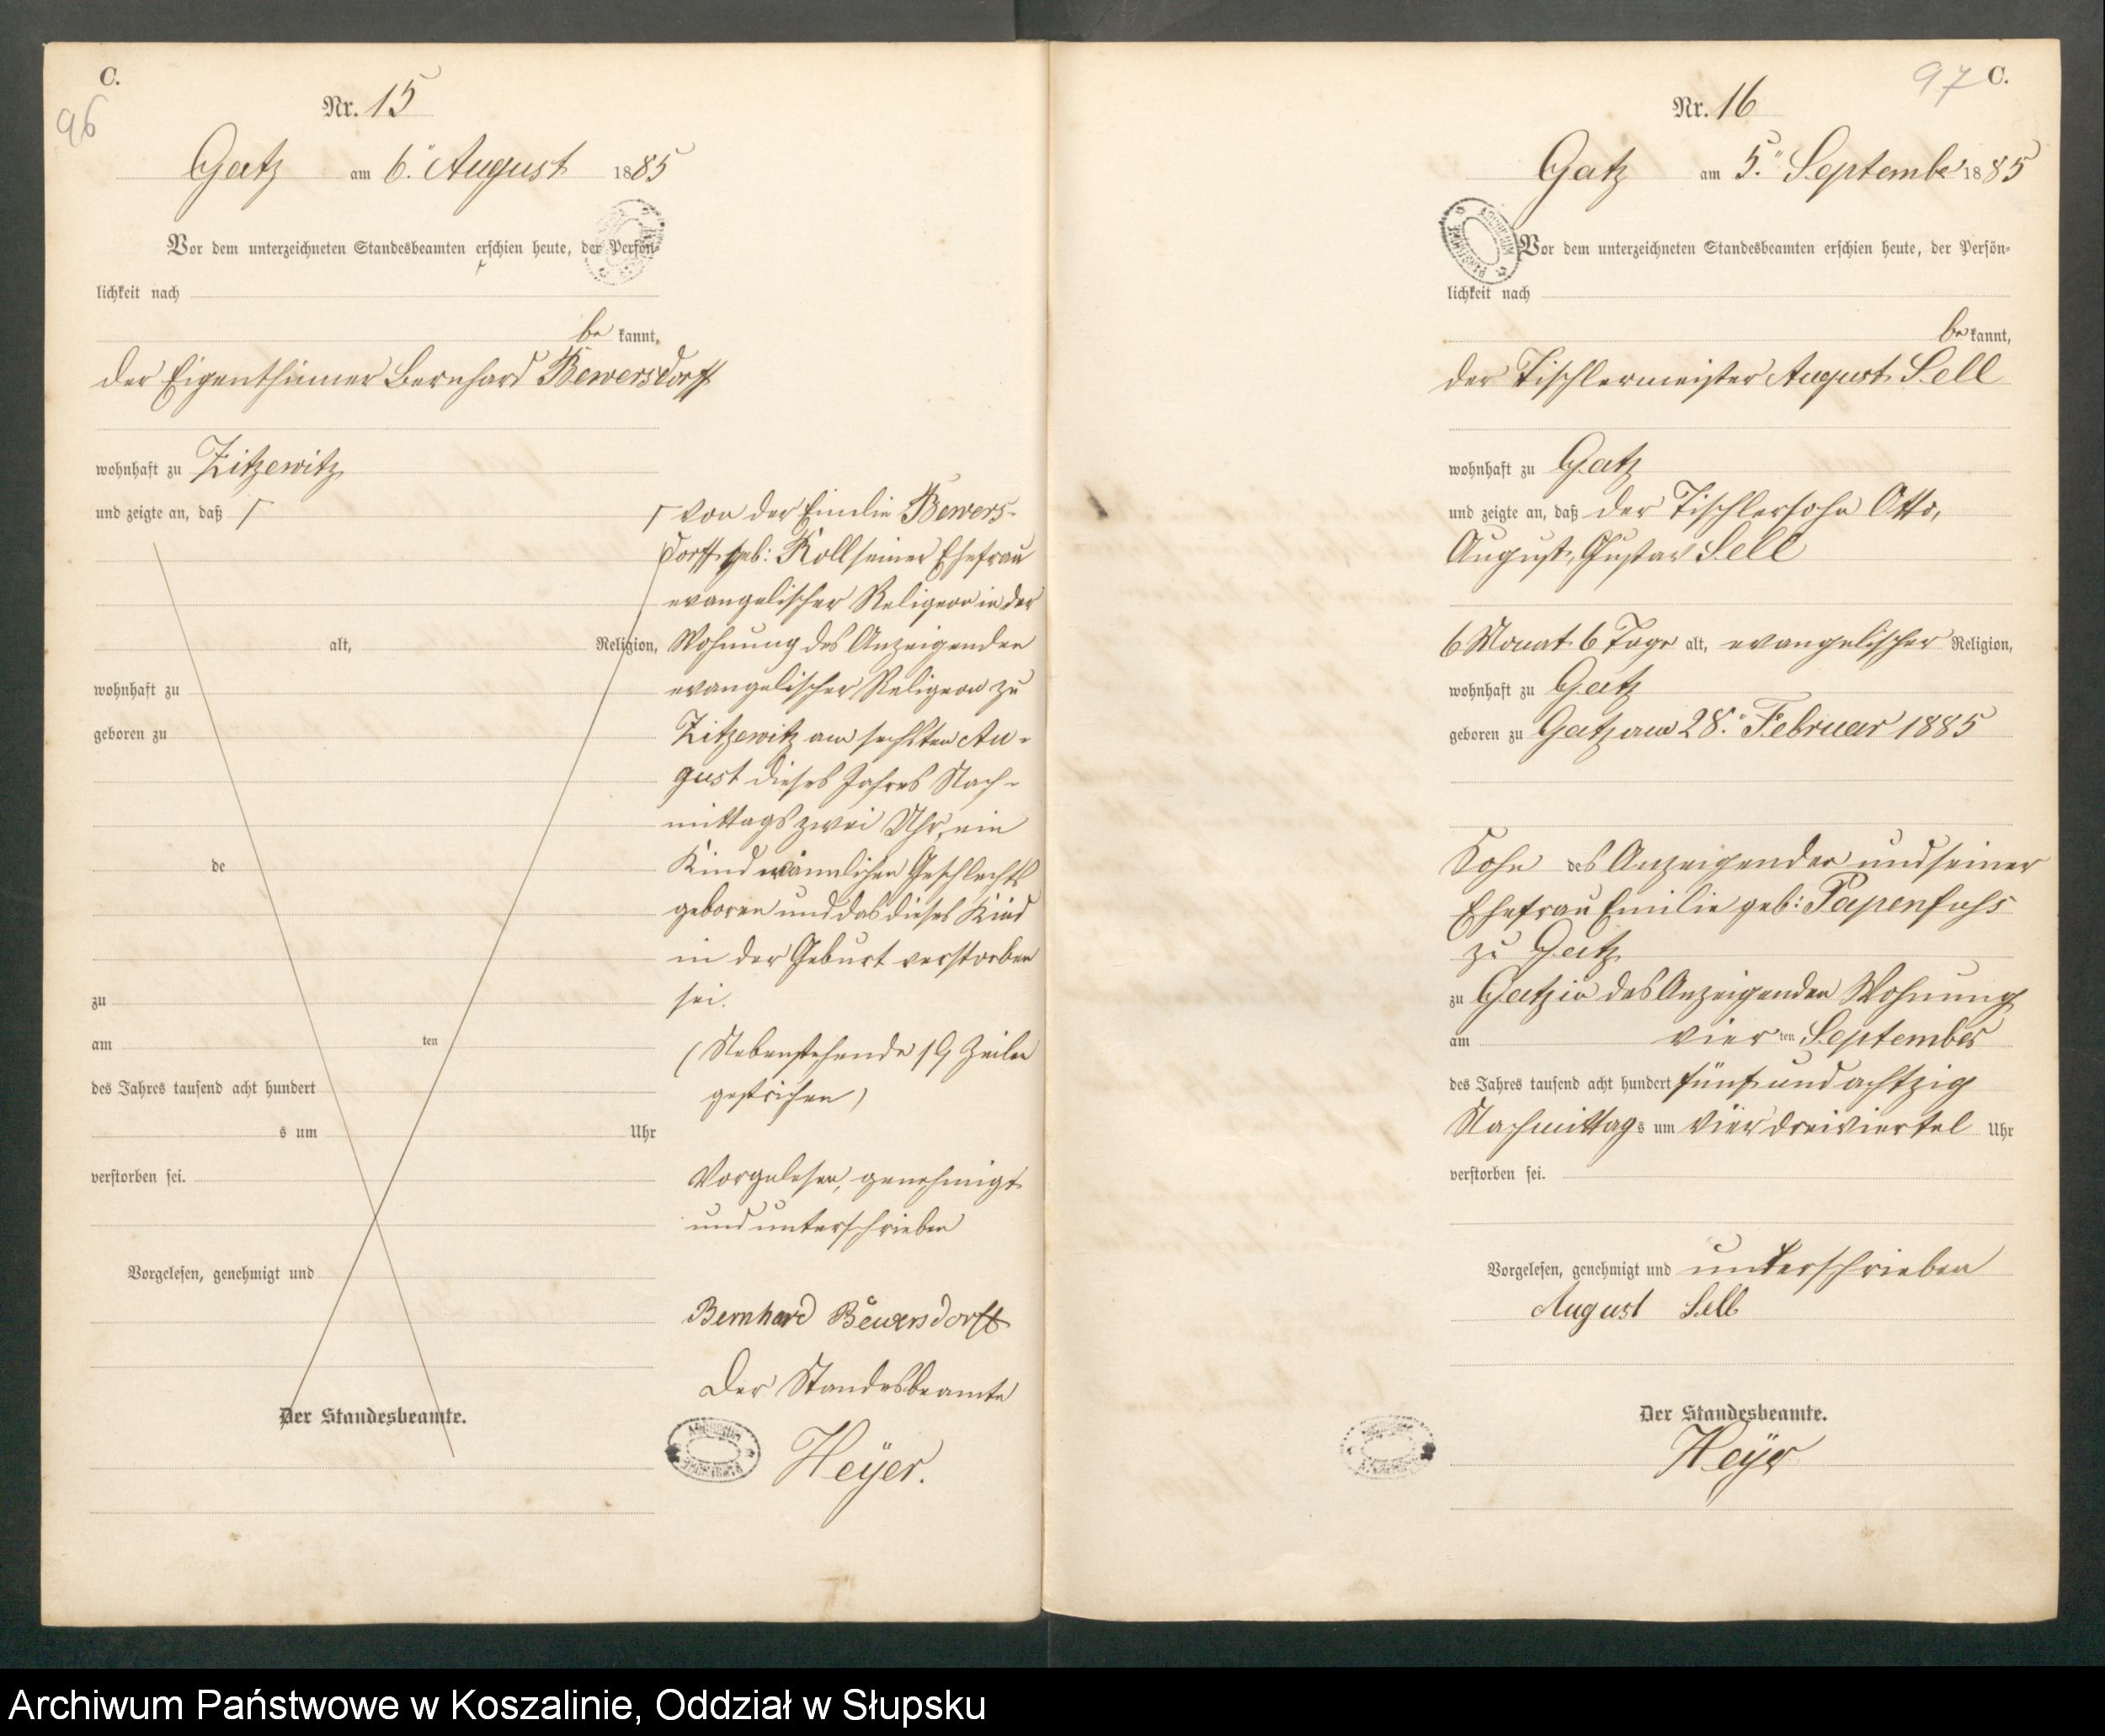 C.
96
Nr. 15
Gatz am 6. August 1885
Vor dem unterzeichneten Standesbeamten erschien heute, der Persön-
lichkeit nach
be kannt,
der Eigenthümer Bernhard Bewersdorff
wohnhaft zu Zitzewitz
und zeigte an, daß Γ
alt, Religion,
wohnhaft zu
geboren zu
de
zu
am ten
des Jahres tausend acht hundert
s um Uhr
verstorben sei.
Vorgelesen, genehmigt und
Der Standesbeamte.
Γ von der Emilie Bewers-
dorff geb: Koll seiner Ehefrau
evangelischer Religion in der
Wohnung des Anzeigenden
evangelischer Religion zu
Zitzewitz am sechsten Au-
gust dieses Jahres Nach-
mittags zwei Uhr, ein
Kind männlichen Geschlechts
geboren und das dieses Kind
in der Geburt verstorben
sei.
(Nebenstehende 19 Zeilen
gestrichen)
Vorgelesen, genehmigt
und unterschrieben
Bernhard Bewersdorff
Der Standesbeamte
Heyer.
97 C.
Nr. 16
Gatz am 5. September 1885
Vor dem unterzeichneten Standesbeamten erschien heute, der Persön-
lichkeit nach
be kannt,
der Tischlermeister August Sell
wohnhaft zu Gatz
und zeigte an, daß der Tischlersohn Otto,
August, Gustav Sell
6 Monat 6 Tage alt, evangelischer Religion,
wohnhaft zu Gatz
geboren zu Gatz am 28. Februar 1885
Sohn des Anzeigenden und seiner
Ehefrau Emilie geb: Papenfuhs
zu Gatz
zu Gatz in des Anzeigenden Wohnung
am vier ten September
des Jahres tausend acht hundert fünf und achtzig
Nachmittags um vier dreiviertel Uhr
verstorben sei.
Vorgelesen, genehmigt und unterschrieben
August Sell
Der Standesbeamte.
Heyer
Archiwum Państwowe w Koszalinie, Oddział w Słupsku